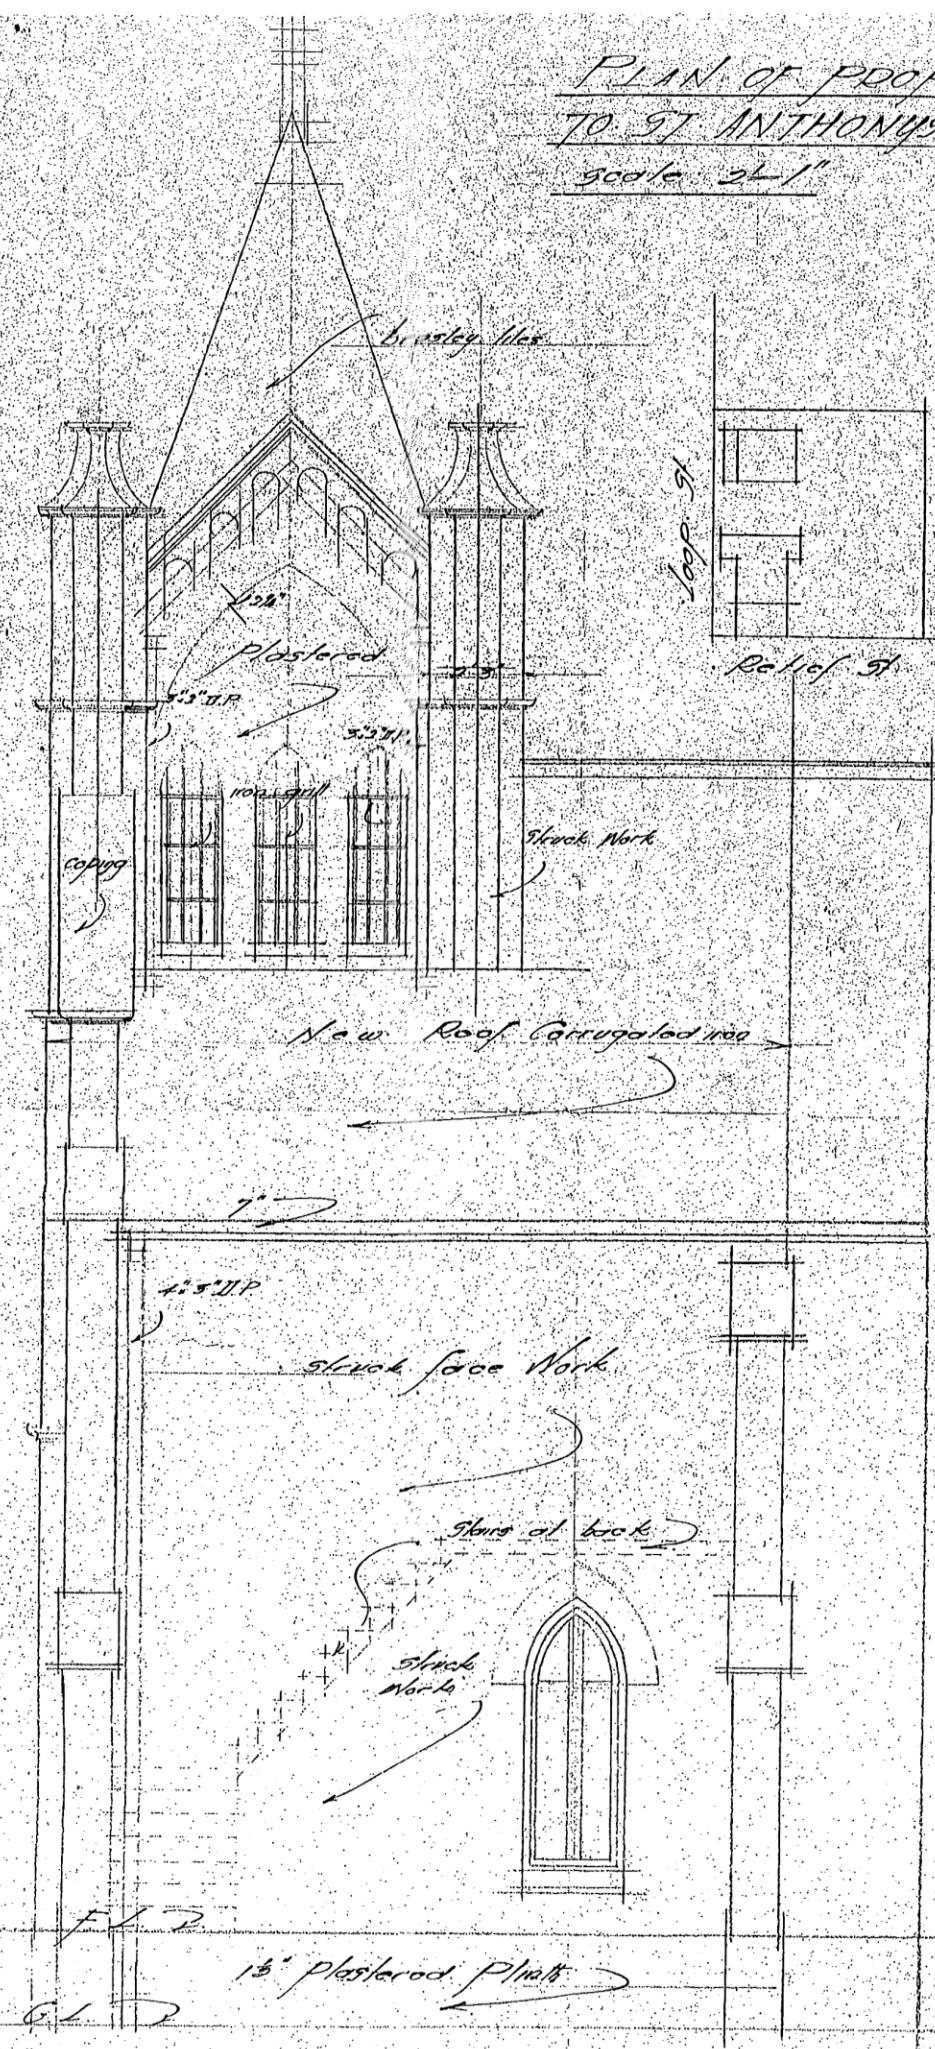 PLAN OF PROP
TO ST ANTHONYS
scale 2'-1"
brosley tiles
Loop. St
Retief St
Plastered
2'3"
3"·3" D.P.
3"·3" D.P.
iron grill
Struck Work
coping
New Roof Carrugated iron
7"
4"·3" D.P
struck face Work
Stairs at back
Struck
Work
F.L.
Plastered Plinth
G.L.